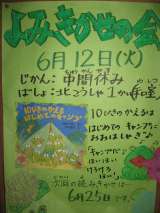 よみきかせの会
6月12日(火)
じかん:中間休み
ばしょ:コピコうしゃ1かい
10ぴきのかえる
はじめてのキャンプ
10ぴきのかえるは
はじめてのキャンプに
おおはしゃぎ♪
次回の読みきかせは
6月25日です。